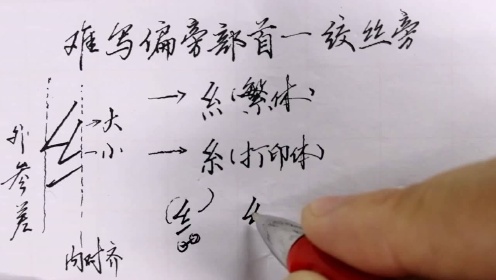 难写偏旁部首一绞丝旁
→大 → 糹(繁体)
→小 → 糸(打印体)
外参差
内对齐